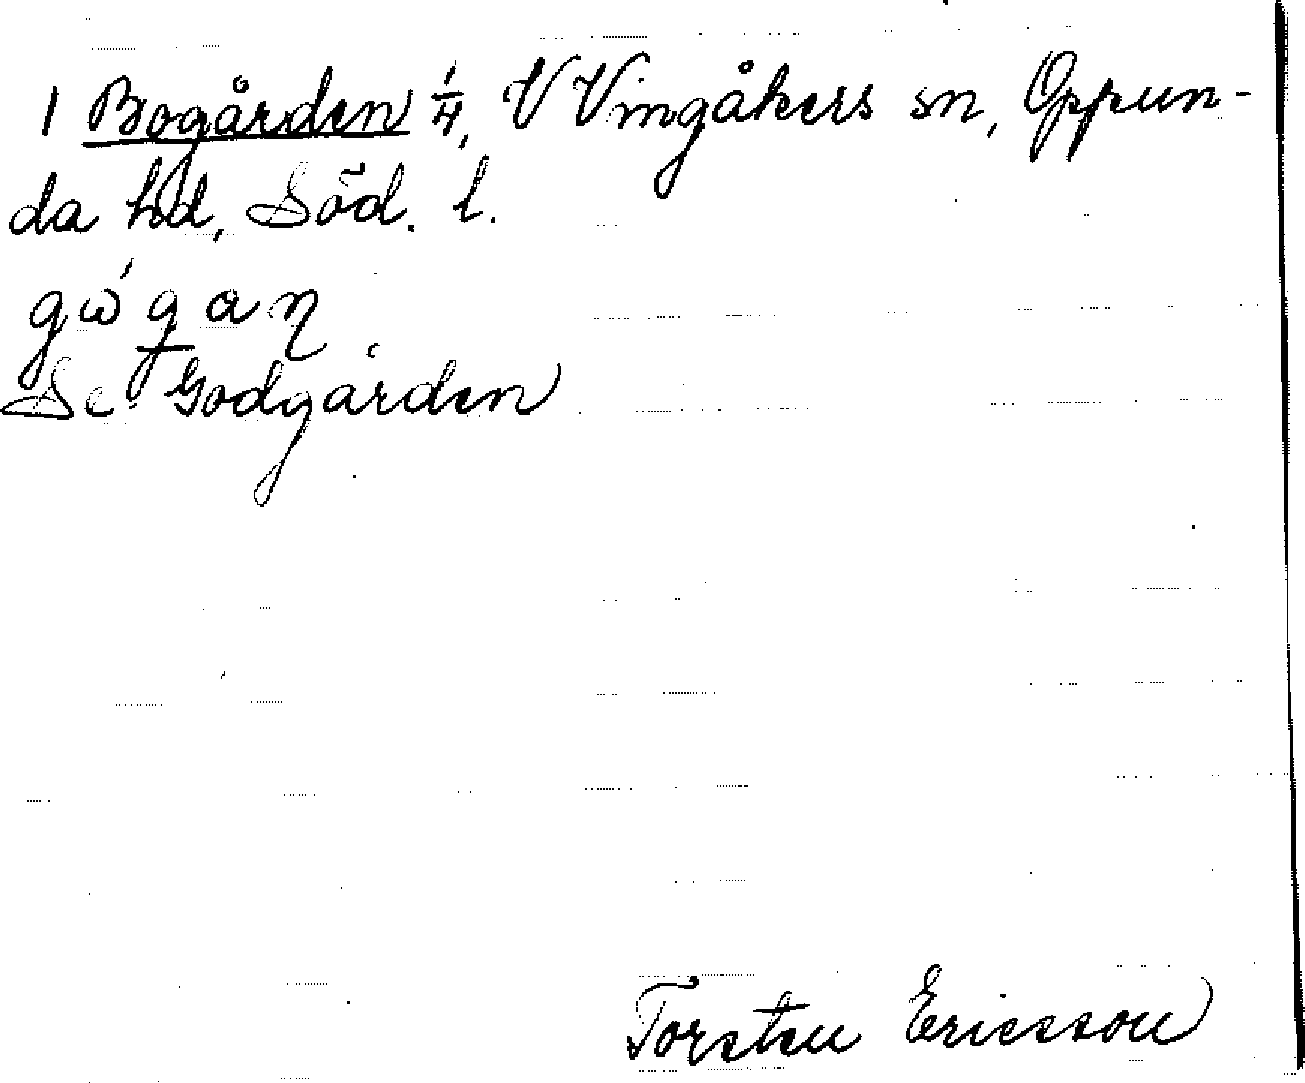 1 Bogården 1/4, V Vingåkers sn, Oppun-
da hd, Söd. l.
gω´gaη
Se Godgården
Torsten Ericsson